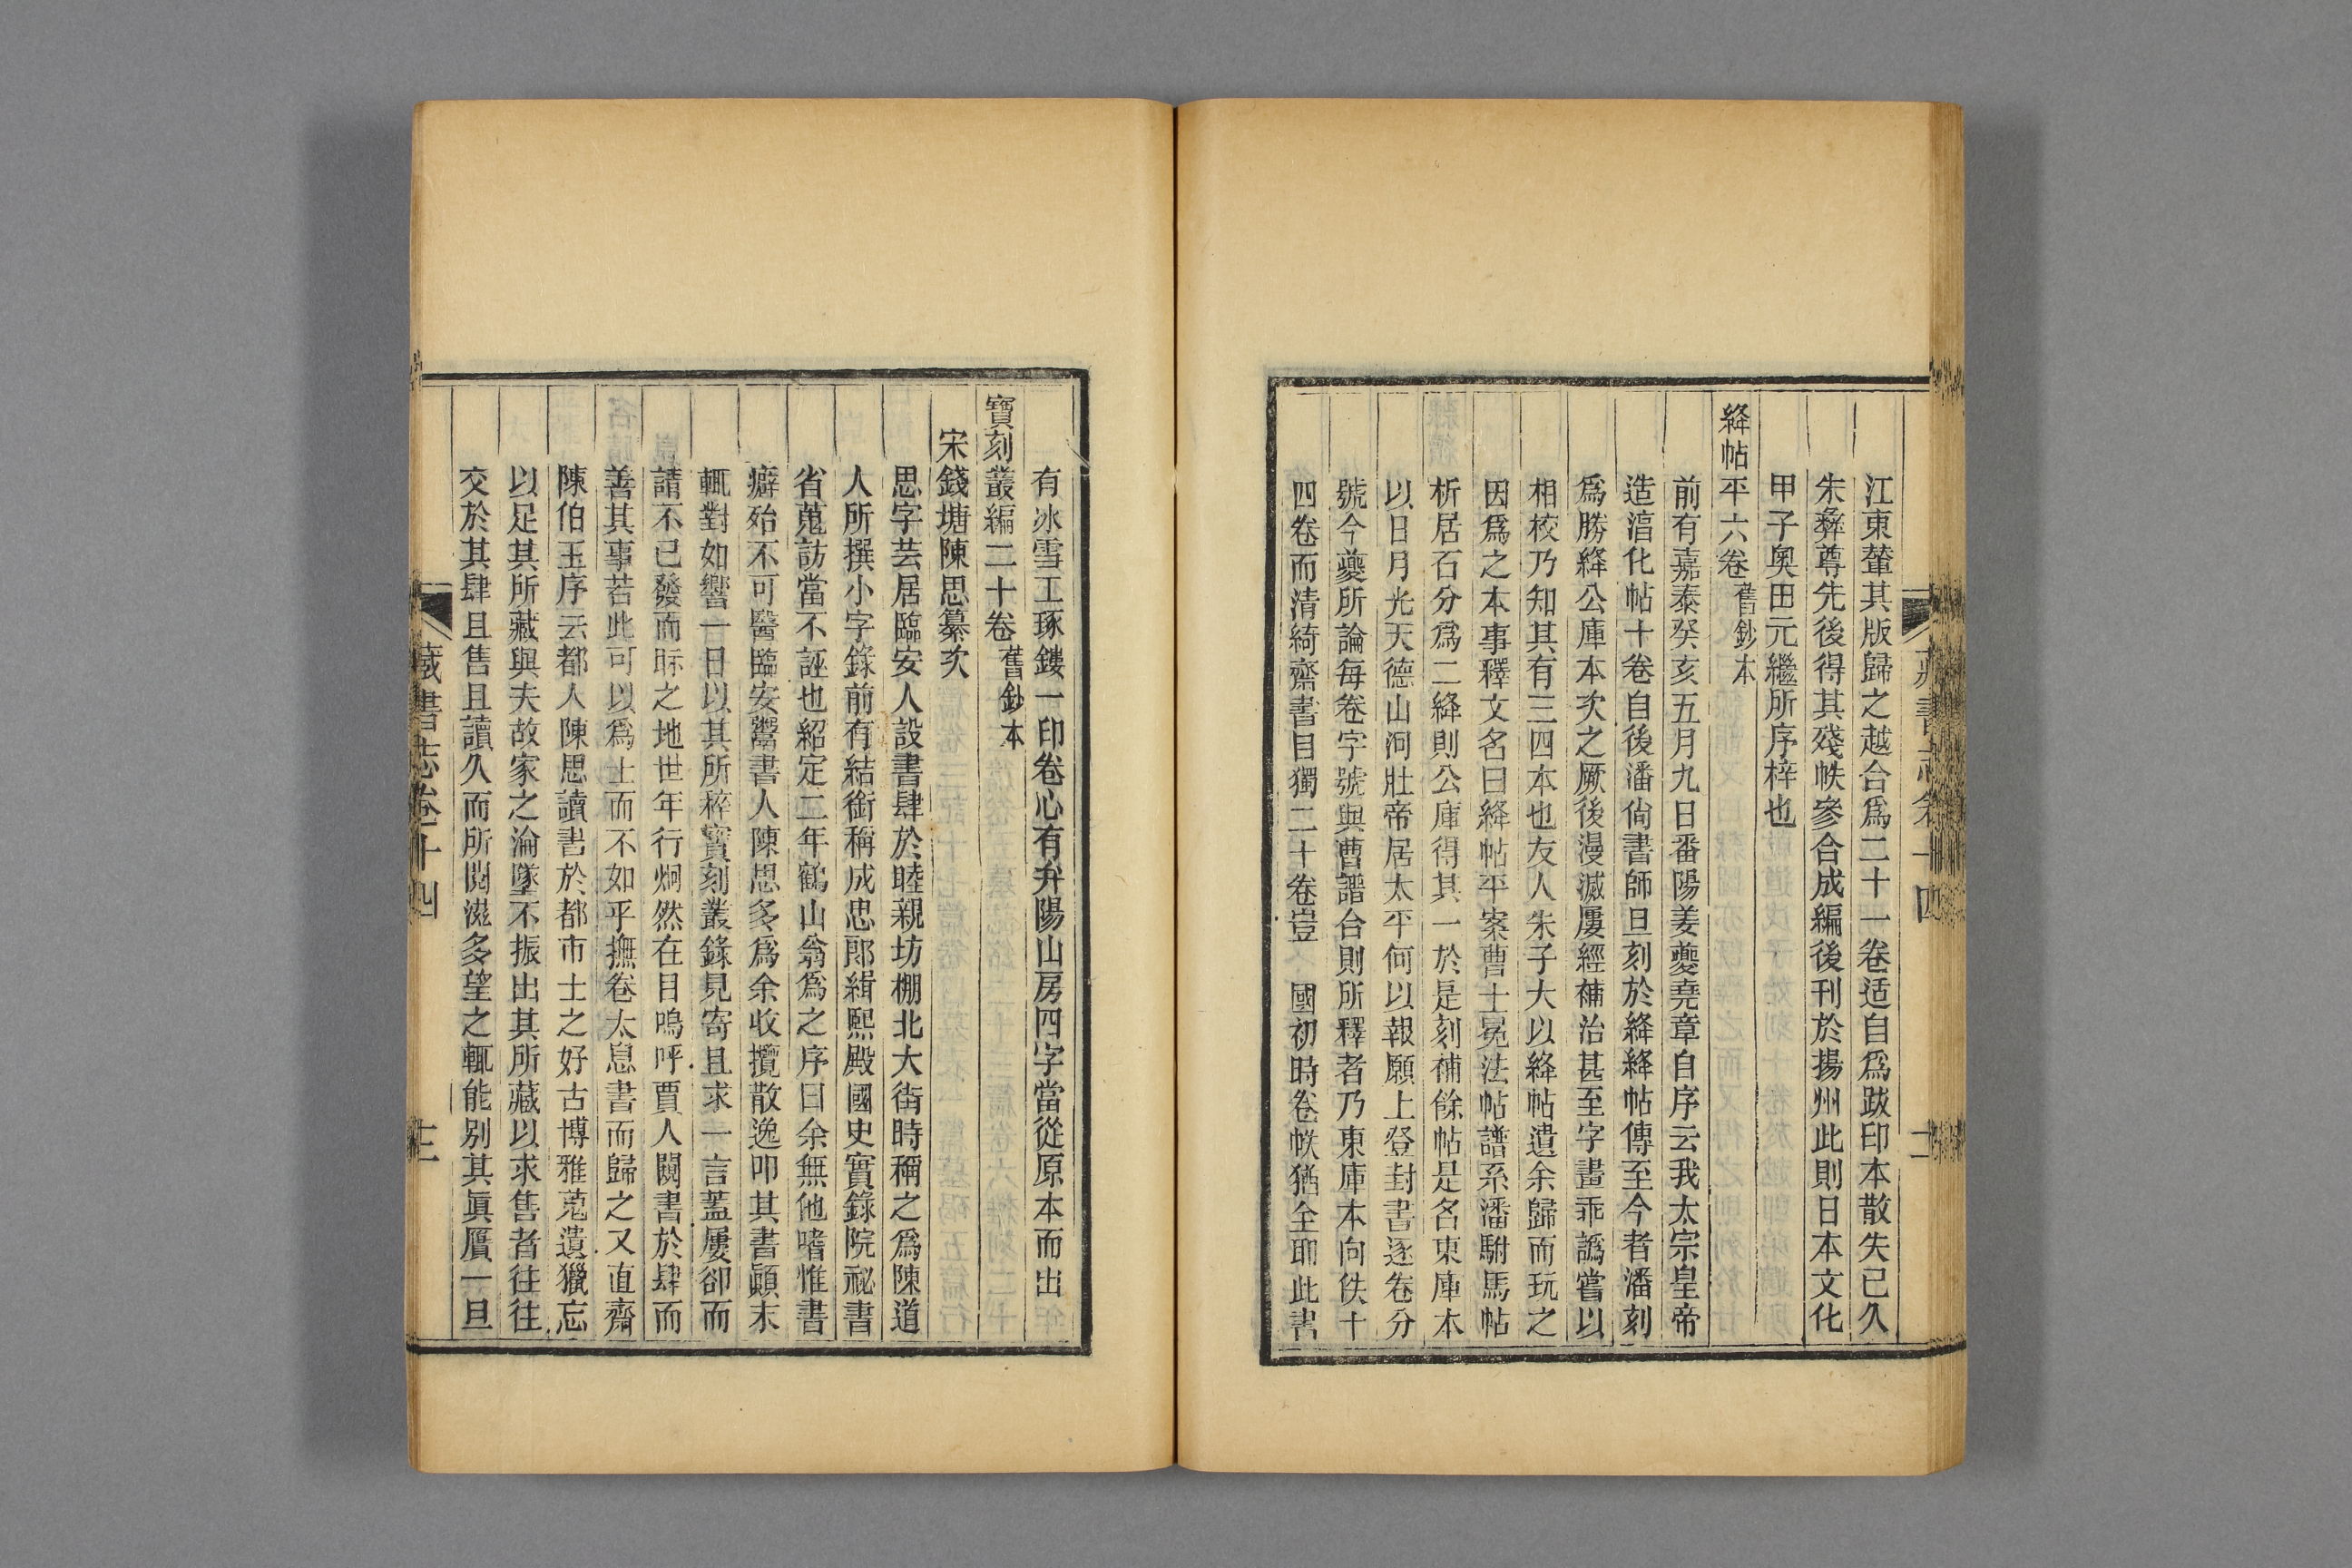 江東輦其版歸之越合爲二十一卷适自爲跋印本散失已久
朱彝尊先後得其殘帙參合成編後刊於揚州此則日本文化
甲子奧田元繼所序梓也
絳帖平六卷舊鈔本
前有嘉泰癸亥五月九日番陽姜夔堯章自序云我太宗皇帝
造淳化帖十卷自後潘尙書師旦刻於絳絳帖傳至今者潘刻
爲勝絳公庫本次之厥後漫滅屢經補治甚至字畫乖譌嘗以
相校乃知其有三四本也友人朱子大以絳帖遺余歸而玩之
因爲之本事釋文名曰絳帖平案曹士冕法帖譜系潘駙馬帖
析居石分爲二絳則公庫得其一於是刻補餘帖是名東庫本
以日月光天德山河壯帝居太平何以報願上登封書逐卷分
號今夔所論每卷字號與曹譜合則所釋者乃東庫本向佚十
四卷而清綺齋書目獨二十卷豈 國初時卷帙猶全耶此書
藏書志卷十四
有冰雪工琢鏤一印卷心有弁陽山房四字當從原本而出
寶刻叢編二十卷舊鈔本
宋錢塘陳思纂次
思字芸居臨安人設書肆於睦親坊棚北大街時稱之爲陳道
人所撰小字錄前有結銜稱成忠郎緝熙殿國史實錄院祕書
省蒐訪當不誣也紹定二年鶴山翁爲之序曰余無他嗜惟書
癖殆不可醫臨安鬻書人陳思多爲余收攬散逸叩其書顚末
輒對如響一日以其所稡寶刻叢錄見寄且求一言蓋屢卻而
請不已發而眎之地世年行炯然在目嗚呼賈人闚書於肆而
善其事若此可以爲士而不如乎撫卷太息書而歸之又直齋
陳伯玉序云都人陳思讀書於都市士之好古博雅蒐遺獵忘
以足其所藏與夫故家之淪墜不振出其所藏以求售者往往
交於其肆且售且讀久而所閱滋多望之輒能別其眞贋一旦
藏書志卷十四